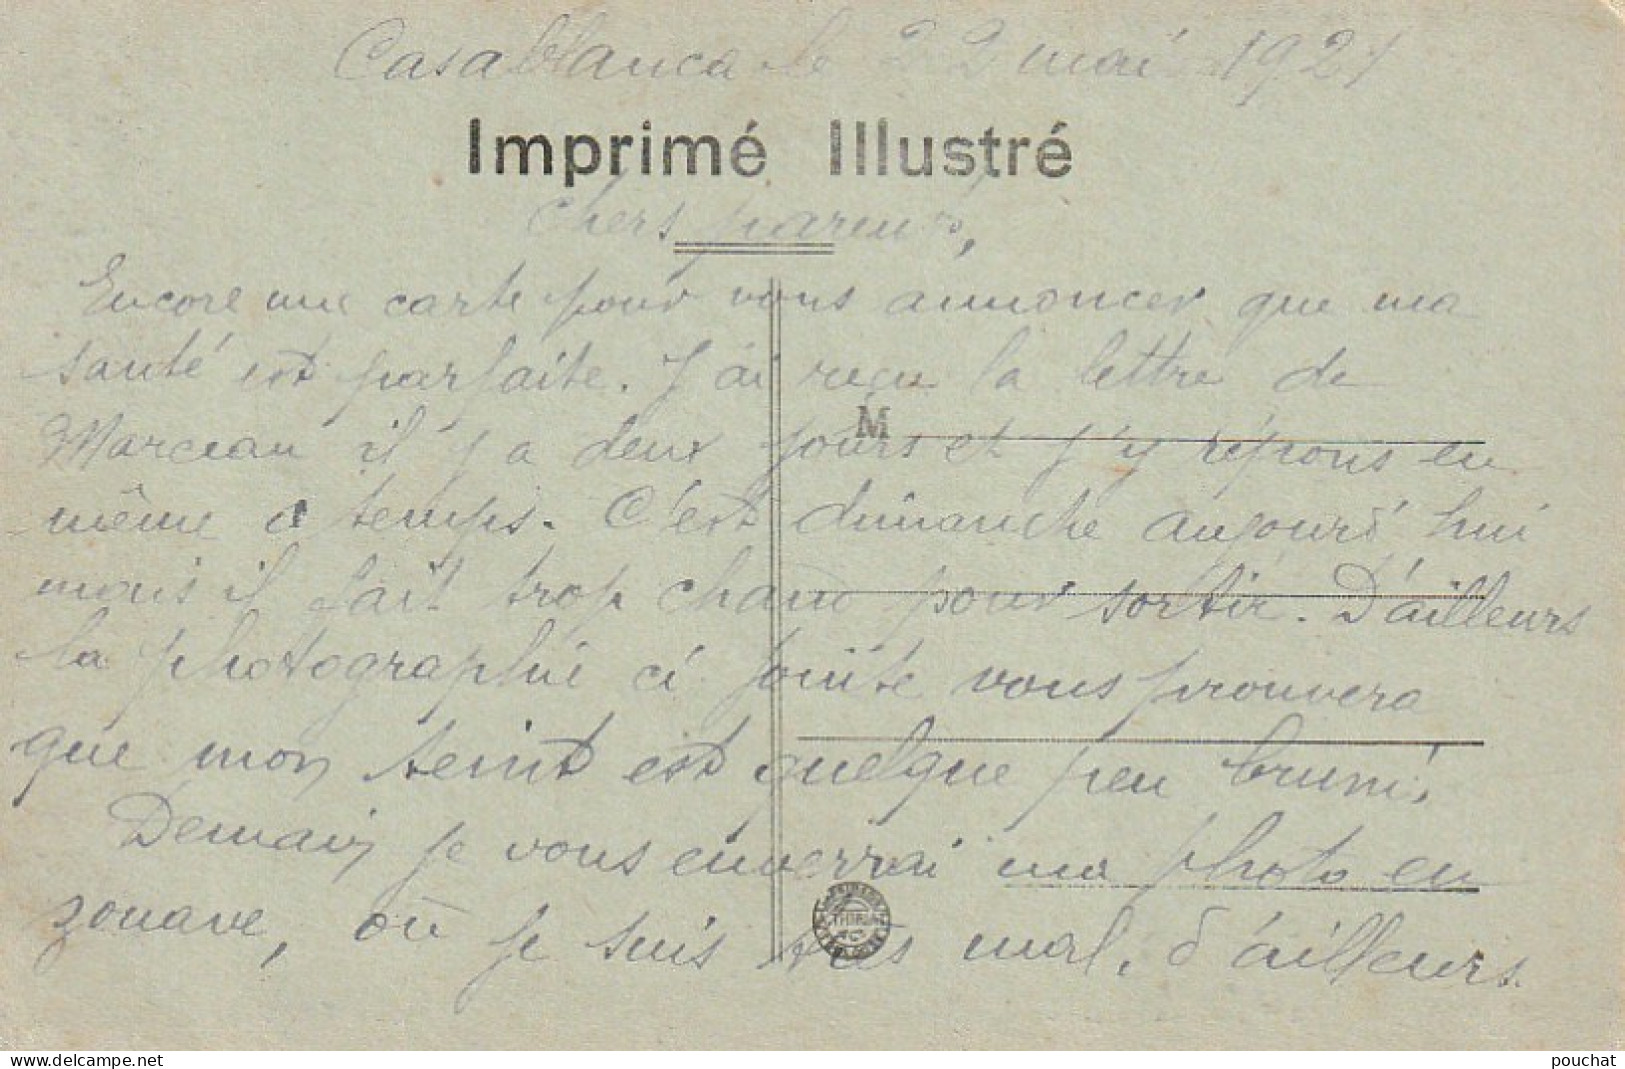 Casablanca le 22 mai 1921
Imprimé Illustré
Chers parents,
Encore une carte pour vous annoncer que ma
santé est parfaite. J'ai reçu la lettre de
M
Marceau il y a deux jours et j'y répons en
même temps. C'est dimanche aujourd'hui
mais il fait trop chaud pour sortir. D'ailleurs
la photographie ci jointe vous prouvera
que mon teint est quelque peu bruni.
Demain je vous enverrai ma photo en
zouave, où je suis très mal, d'ailleurs.
www.delcampe.net
pouchat